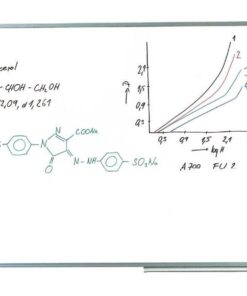 - CHOH - CH₂OH
2,09, d 1,261
COONa
N
N
N
O
N - NH
SO₃Na
1
2
3
4
2,1
1,5
0,9
0,3
0,3
0,9
1,5
2,1
→ log H
A 700 FU 2